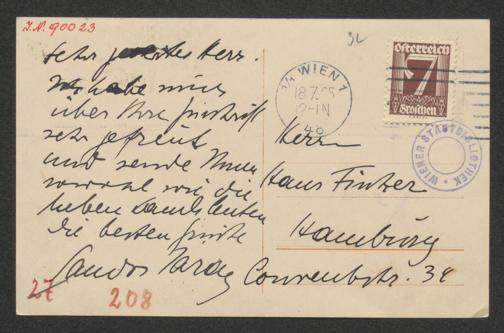 J.N. 90023
Sehr geehrtes Herr.
Ich habe mich
über Ihre Zuschrift
sehr gefreut
und sende Ihnen
sowohl wie die
lieben Landsleuten
die besten Grüße
27
208
32
1/1 WIEN 1
18.7.25
12-IN
Österreich
7
Groschen
WIENER STADTBIBLIOTHEK
Herrn
Hans
Hamburg
34